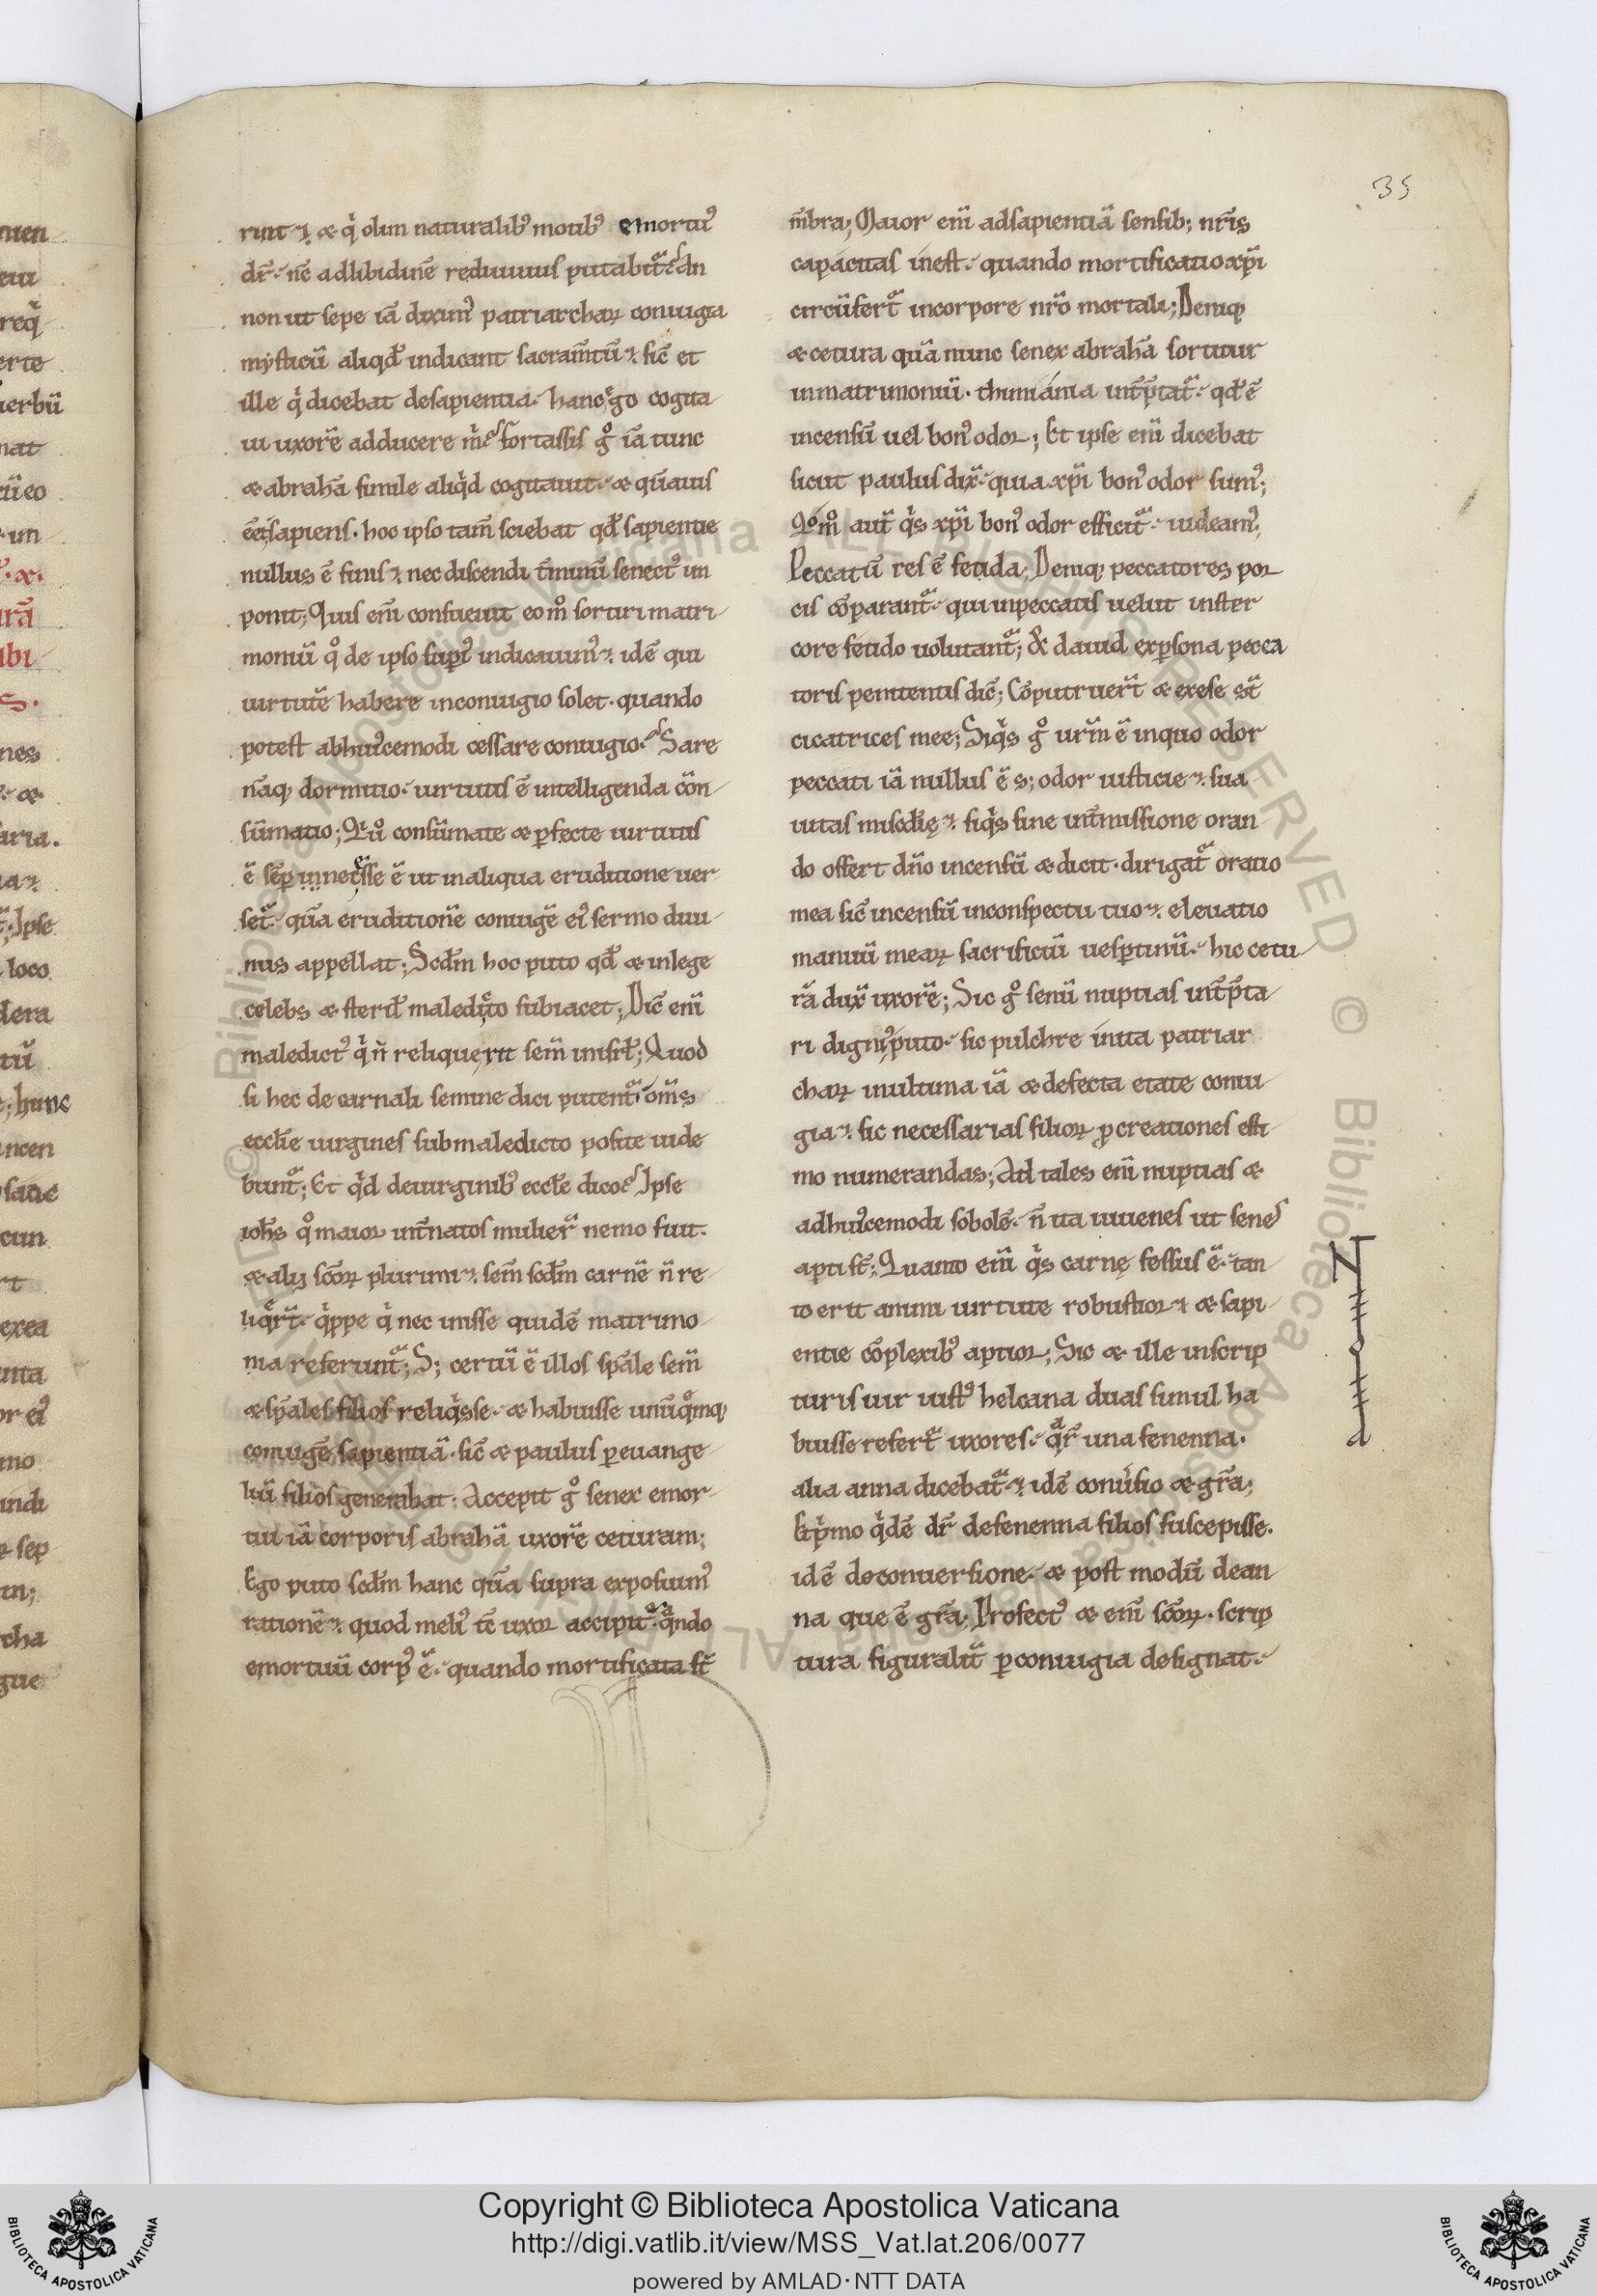 35
rint ⁊ & q̇ olim naturalibꝰ motibꝰ emortuꝰ
dr̄. nc̄ ad libidinē rediuiuus putabit᷑. An
non ut sepe iā diximꝰ patriarchaꝝ coniugia
mysticū aliqd̄ indicant sacram̄tū. sic̄ et
ille q̇ dicebat de sapientia. hanc ergo cogita
ui uxorē adducere m̄. fortassis gͦ iā tunc
& abrahā simile aliq̇d cogitauit. & q̄muis
eēt sapiens. hoc ipso tam̄ sciebat qd̄ sapientie
nullus ē finis. nec discendi t̄minū senectꝰ im
ponit; Quis eni᷑ consueuit eo mͦ sortiri matri
moniū qͦ de ipso supꝰ indicauimꝰ. idē qui
uirtutē habere in coniugio solet. quando
potest ab huiꝰcemodi cessare coniugio. Sare
nāq; dormitio. uirtutis ē intelligenda con̄
sūmatio; Qui uͦ consūmate & ꝑfecte uirtutis
ē sēꝑ in necesse ē ut in aliqua eruditione uer
set᷑. quā eruditionē coniugē eiꝰ sermo diui
nus appellat; Scdm̄ hoc puto qd̄ & in lege
celebs & steril̄ maledicto subiacet; Dic̄ eni᷑
maledictꝰ q̇ n̄ reliquerit sem̄ in isrl̄; Quod
si hec de carnali semine dici putent᷑. om̄s
ecclīe uirgines sub maledicto posite uide
bunt᷑; Et q̇d de uirginibꝰ eccl̄e dico. Ipse
ioh̄s qͦ maior int̄ natos mulier᷑ nemo fuit.
& alij scōꝝ plurimi. sem̄ scdm̄ carnē n̄ re
liq̄rt̄. q̇ppe q̇ nec inisse quidē matrimo
nia referunt᷑; S; certū ē illos sp̄ale sem̄
& sp̄ales filios reliq̇sse. & habuisse unūq̄mq;
coniugē sapientiā. sic̄ & paulus ꝑ euange
liū filios generabat; Accepit gͦ senex emor
tui iā corporis abrahā uxorē ceturam;
Ego puto scdm̄ hanc quā supra exposuimꝰ
rationē. quod meliꝰ tc̄ uxor accipit᷑. q̄ndo
emortuū corpꝰ ē. quando mortificata st̄
m̄bra; Maior eni᷑ ad sapientiā sensib; nr̄is
capacitas inest. quando mortificatio xp̄i
circūfert᷑ in corpore nr̄o mortali; Deniq;
& cetura quā nunc senex abrahā sortitur
in matrimoniū. thimiama int̄p̄tat᷑. qd̄ ē
incensū uel bonꝰ odor; Et ipse eni᷑ dicebat
sicut paulus dix̄. quia xp̄i bonꝰ odor sumꝰ;
Qͦmͦ aut̄ q̇s xp̄i bonꝰ odor efficit᷑. uideamꝰ;
Peccatū res ē fetida; Deniq; peccatores por
cis cōparant᷑. qui in peccatis uelut in ster
core fetido uolutant᷑; & dauid ex ꝑsona pecca
toris penitentis dic̄; Cōputruer̄t & exese st̄
cicatrices mee; Siq̇s gͦ ur̄m ē in quo odor
peccati iā nullus ē s; odor iusticie. sua
uitas mis̄cd̄ię. siq̇s sine int̄missione oran
do offert dn̄o incensū & dicit. dirigat᷑ oratio
mea sic̄ incensū in conspectu tuo. eleuatio
manuū meaꝝ sacrificiū uesꝑtinū. hic cetu
rā dux̄ uxorē; Sic gͦ senū nuptias int̄p̄ta
ri digniꝰ puto. sic pulchre inita patriar
chaꝝ in ultima iā & defecta etate coniu
gia. sic necessarias filioꝝ ꝓcreationes esti
mo numerandas; Ad tales eni᷑ nuptias &
ad huiꝰcemodi sobolē. n̄ ita iuuenes ut senes
apti st̄; Quanto eni᷑ q̇s carnę fessus ē. tan
to erit animi uirtute robustior. & sapi
entie cōplexibꝰ aptior; Sic & ille in scrip
turis uir iustꝰ helcana duas simul ha
buisse refert᷑ uxores. q̄r̄ una fenenna.
alia anna dicebat᷑. idē conu̓sio & gr̄a;
Et p̓mo q̇dē dr̄ de fenenna filios suscepisse.
idē de conuersione. & post modū de an
na que ē gr̄a; Profectꝰ & eni᷑ scōꝝ. scrip
tura figuralit̄ ꝑ coniugia designat.
© Biblioteca Apostolica Vaticana ALL RIGHTS RESERVED
Copyright © Biblioteca Apostolica Vaticana
http://digi.vatlib.it/view/MSS_Vat.lat.206/0077
powered by AMLAD·NTT DATA
BIBLIOTECA APOSTOLICA VATICANA
BIBLIOTECA APOSTOLICA VATICANA